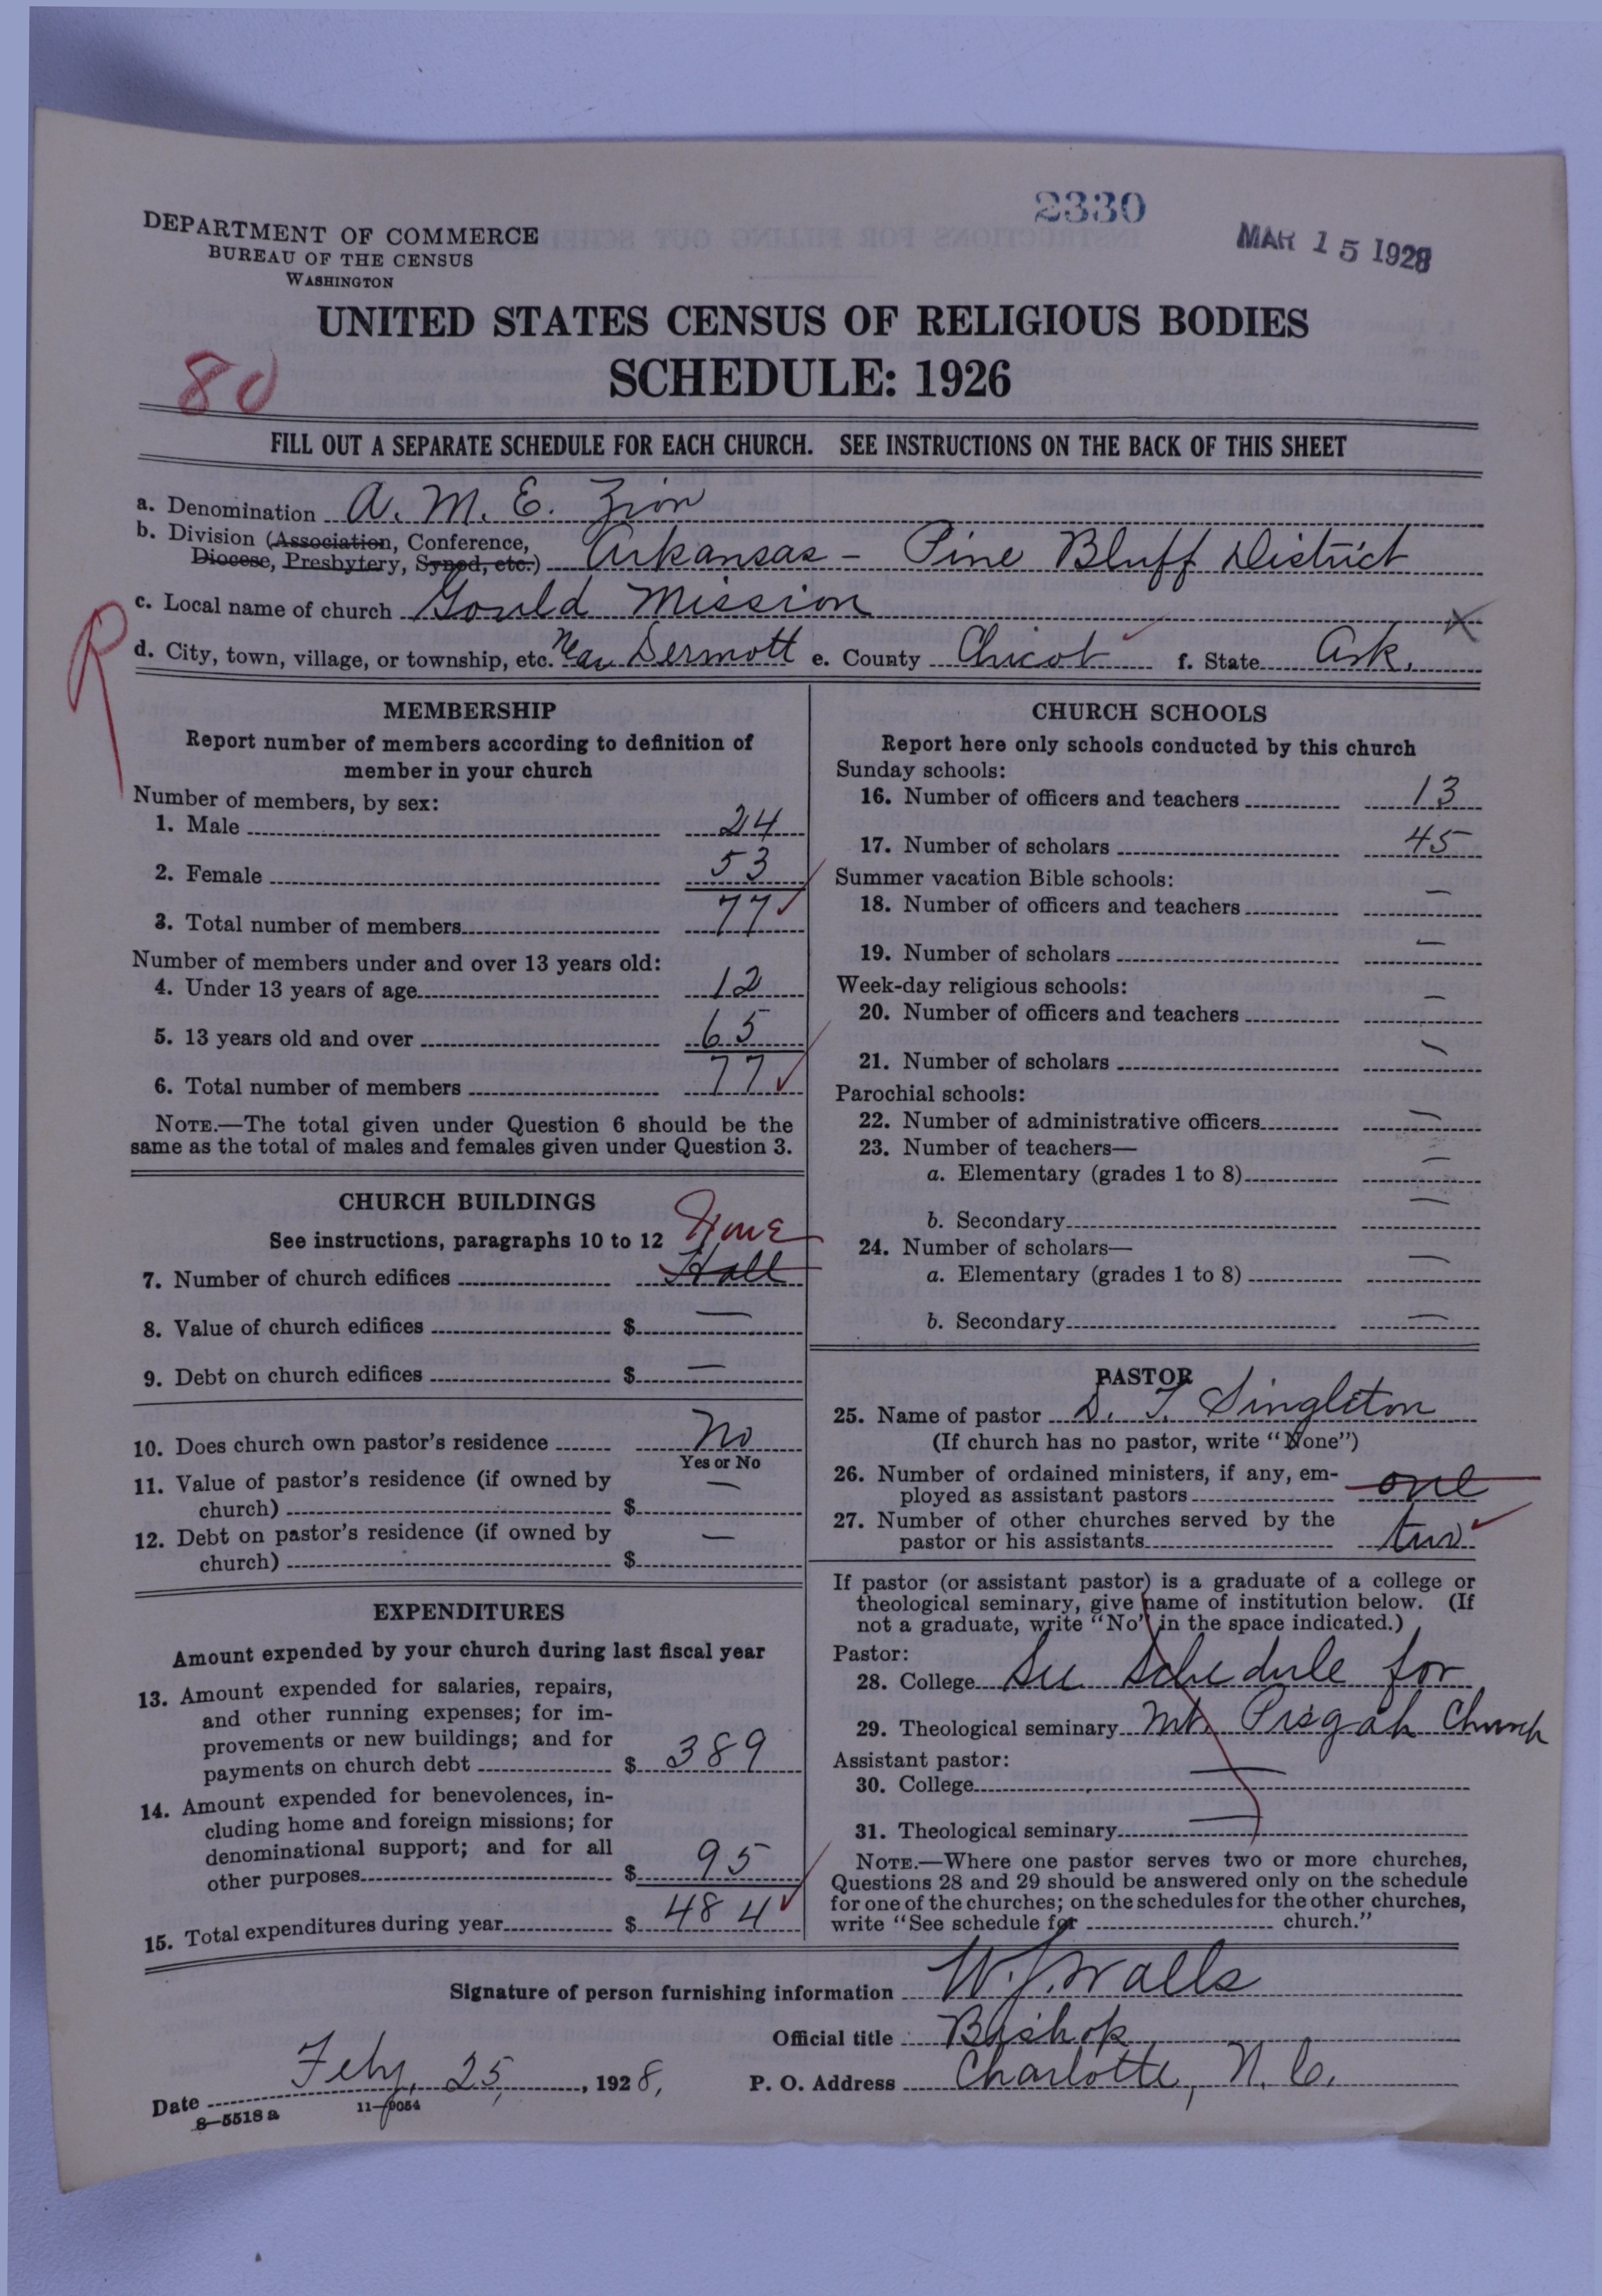 2330
MAR 15 1928
DEPARTMENT OF COMMERCE
BUREAU OF THE CENSUS
WASHINGTON
UNITED STATES CENSUS OF RELIGIOUS BODIES
SCHEDULE: 1926
80
FILL OUT A SEPARATE SCHEDULE FOR EACH CHURCH. SEE INSTRUCTIONS ON THE BACK OF THIS SHEET
a. Denomination A. M. E. Zion
b. Division (Association, Conference,
Diocese, Presbytery, Synod, etc.) Arkansas - Pine Bluff District
c. Local name of church Gould Mission
R
X
d. City, town, village, or township, etc. Near Dermott e. County Chicot f. State Ark.
MEMBERSHIP
Report number of members according to definition of
member in your church
Number of members, by sex:
1. Male 24
2. Female 53
3. Total number of members 77
Number of members under and over 13 years old:
4. Under 13 years of age 12
5. 13 years old and over 65
6. Total number of members 77
NOTE.—The total given under Question 6 should be the
same as the total of males and females given under Question 3.
CHURCH BUILDINGS
See instructions, paragraphs 10 to 12 None
7. Number of church edifices Hall
8. Value of church edifices $ —
9. Debt on church edifices $ —
10. Does church own pastor's residence No
Yes or No
11. Value of pastor's residence (if owned by
church) $ —
12. Debt on pastor's residence (if owned by
church) $ —
EXPENDITURES
Amount expended by your church during last fiscal year
13. Amount expended for salaries, repairs,
and other running expenses; for im-
provements or new buildings; and for
payments on church debt $ 389
14. Amount expended for benevolences, in-
cluding home and foreign missions; for
denominational support; and for all
other purposes $ 95
15. Total expenditures during year $ 484
CHURCH SCHOOLS
Report here only schools conducted by this church
Sunday schools:
16. Number of officers and teachers 13
17. Number of scholars 45
Summer vacation Bible schools:
18. Number of officers and teachers —
19. Number of scholars —
Week-day religious schools:
20. Number of officers and teachers —
21. Number of scholars —
Parochial schools:
22. Number of administrative officers —
23. Number of teachers—
a. Elementary (grades 1 to 8) —
b. Secondary —
24. Number of scholars—
a. Elementary (grades 1 to 8) —
b. Secondary —
PASTOR
25. Name of pastor D. T. Singleton
(If church has no pastor, write "None")
26. Number of ordained ministers, if any, em-
ployed as assistant pastors one
27. Number of other churches served by the
pastor or his assistants two
If pastor (or assistant pastor) is a graduate of a college or
theological seminary, give name of institution below. (If
not a graduate, write "No" in the space indicated.)
Pastor:
28. College See Schedule for
29. Theological seminary Mt. Pisgah Church
Assistant pastor:
30. College —
31. Theological seminary —
NOTE.—Where one pastor serves two or more churches,
Questions 28 and 29 should be answered only on the schedule
for one of the churches; on the schedules for the other churches,
write "See schedule for church."
Signature of person furnishing information W. J. Walls
Official title Bishop
Date Feby. 25, 1928, P. O. Address Charlotte, N. C.
8-5518 a 11-9054